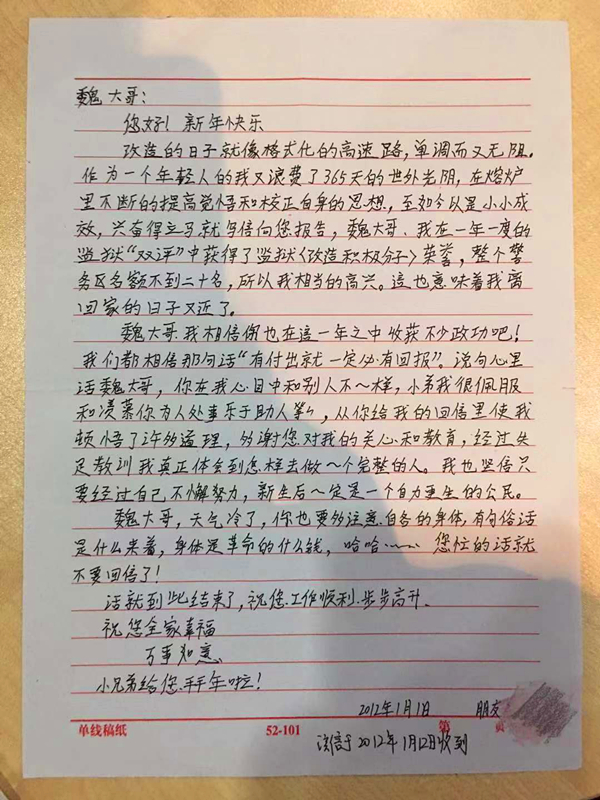 魏大哥:
您好! 新年快乐
改造的日子就像格式化的高速路,单调而又无阻。
作为一个年轻人的我又浪费了365天的世外光阴,在熔炉
里不断的提高觉悟和校正自身的思想,至如今以是小小成
效,兴奋得立马就写信向您报告,魏大哥、我在一年一度的
监狱“双评”中获得了监狱《改造积极分子》荣誉,整个警
务区名额不到二十名,所以我相当的高兴。这也意味着我离
回家的日子又近了。
魏大哥.我相信你也在这一年之中收获不少政功吧!
我们都相信那句话“有付出就一定必有回报”。说句心里
话魏大哥,你在我心目中和别人不一样,小弟我很佩服
和羡慕你为人处事乐于助人等等,从你给我的回信里使我
顿悟了许多道理,多谢您对我的关心和教育,经过失
足教训我真正体会到怎样去做一个完整的人。我也坚信只
要经过自己不懈努力,新生后一定是一个自力更生的公民。
魏大哥,天气冷了,你也要多注意自各的身体,有句俗话
是什么来着,身体是革命的什么钱,哈哈…… 您忙的话就
不要回信了!
话就到此结束了,祝您工作顺利.步步高升.
祝您全家幸福
万事如意、
小兄弟给您拜年啦!
2012年1月1日 朋友
单线稿纸 52-101 第 页
该信于2012年1月12日收到